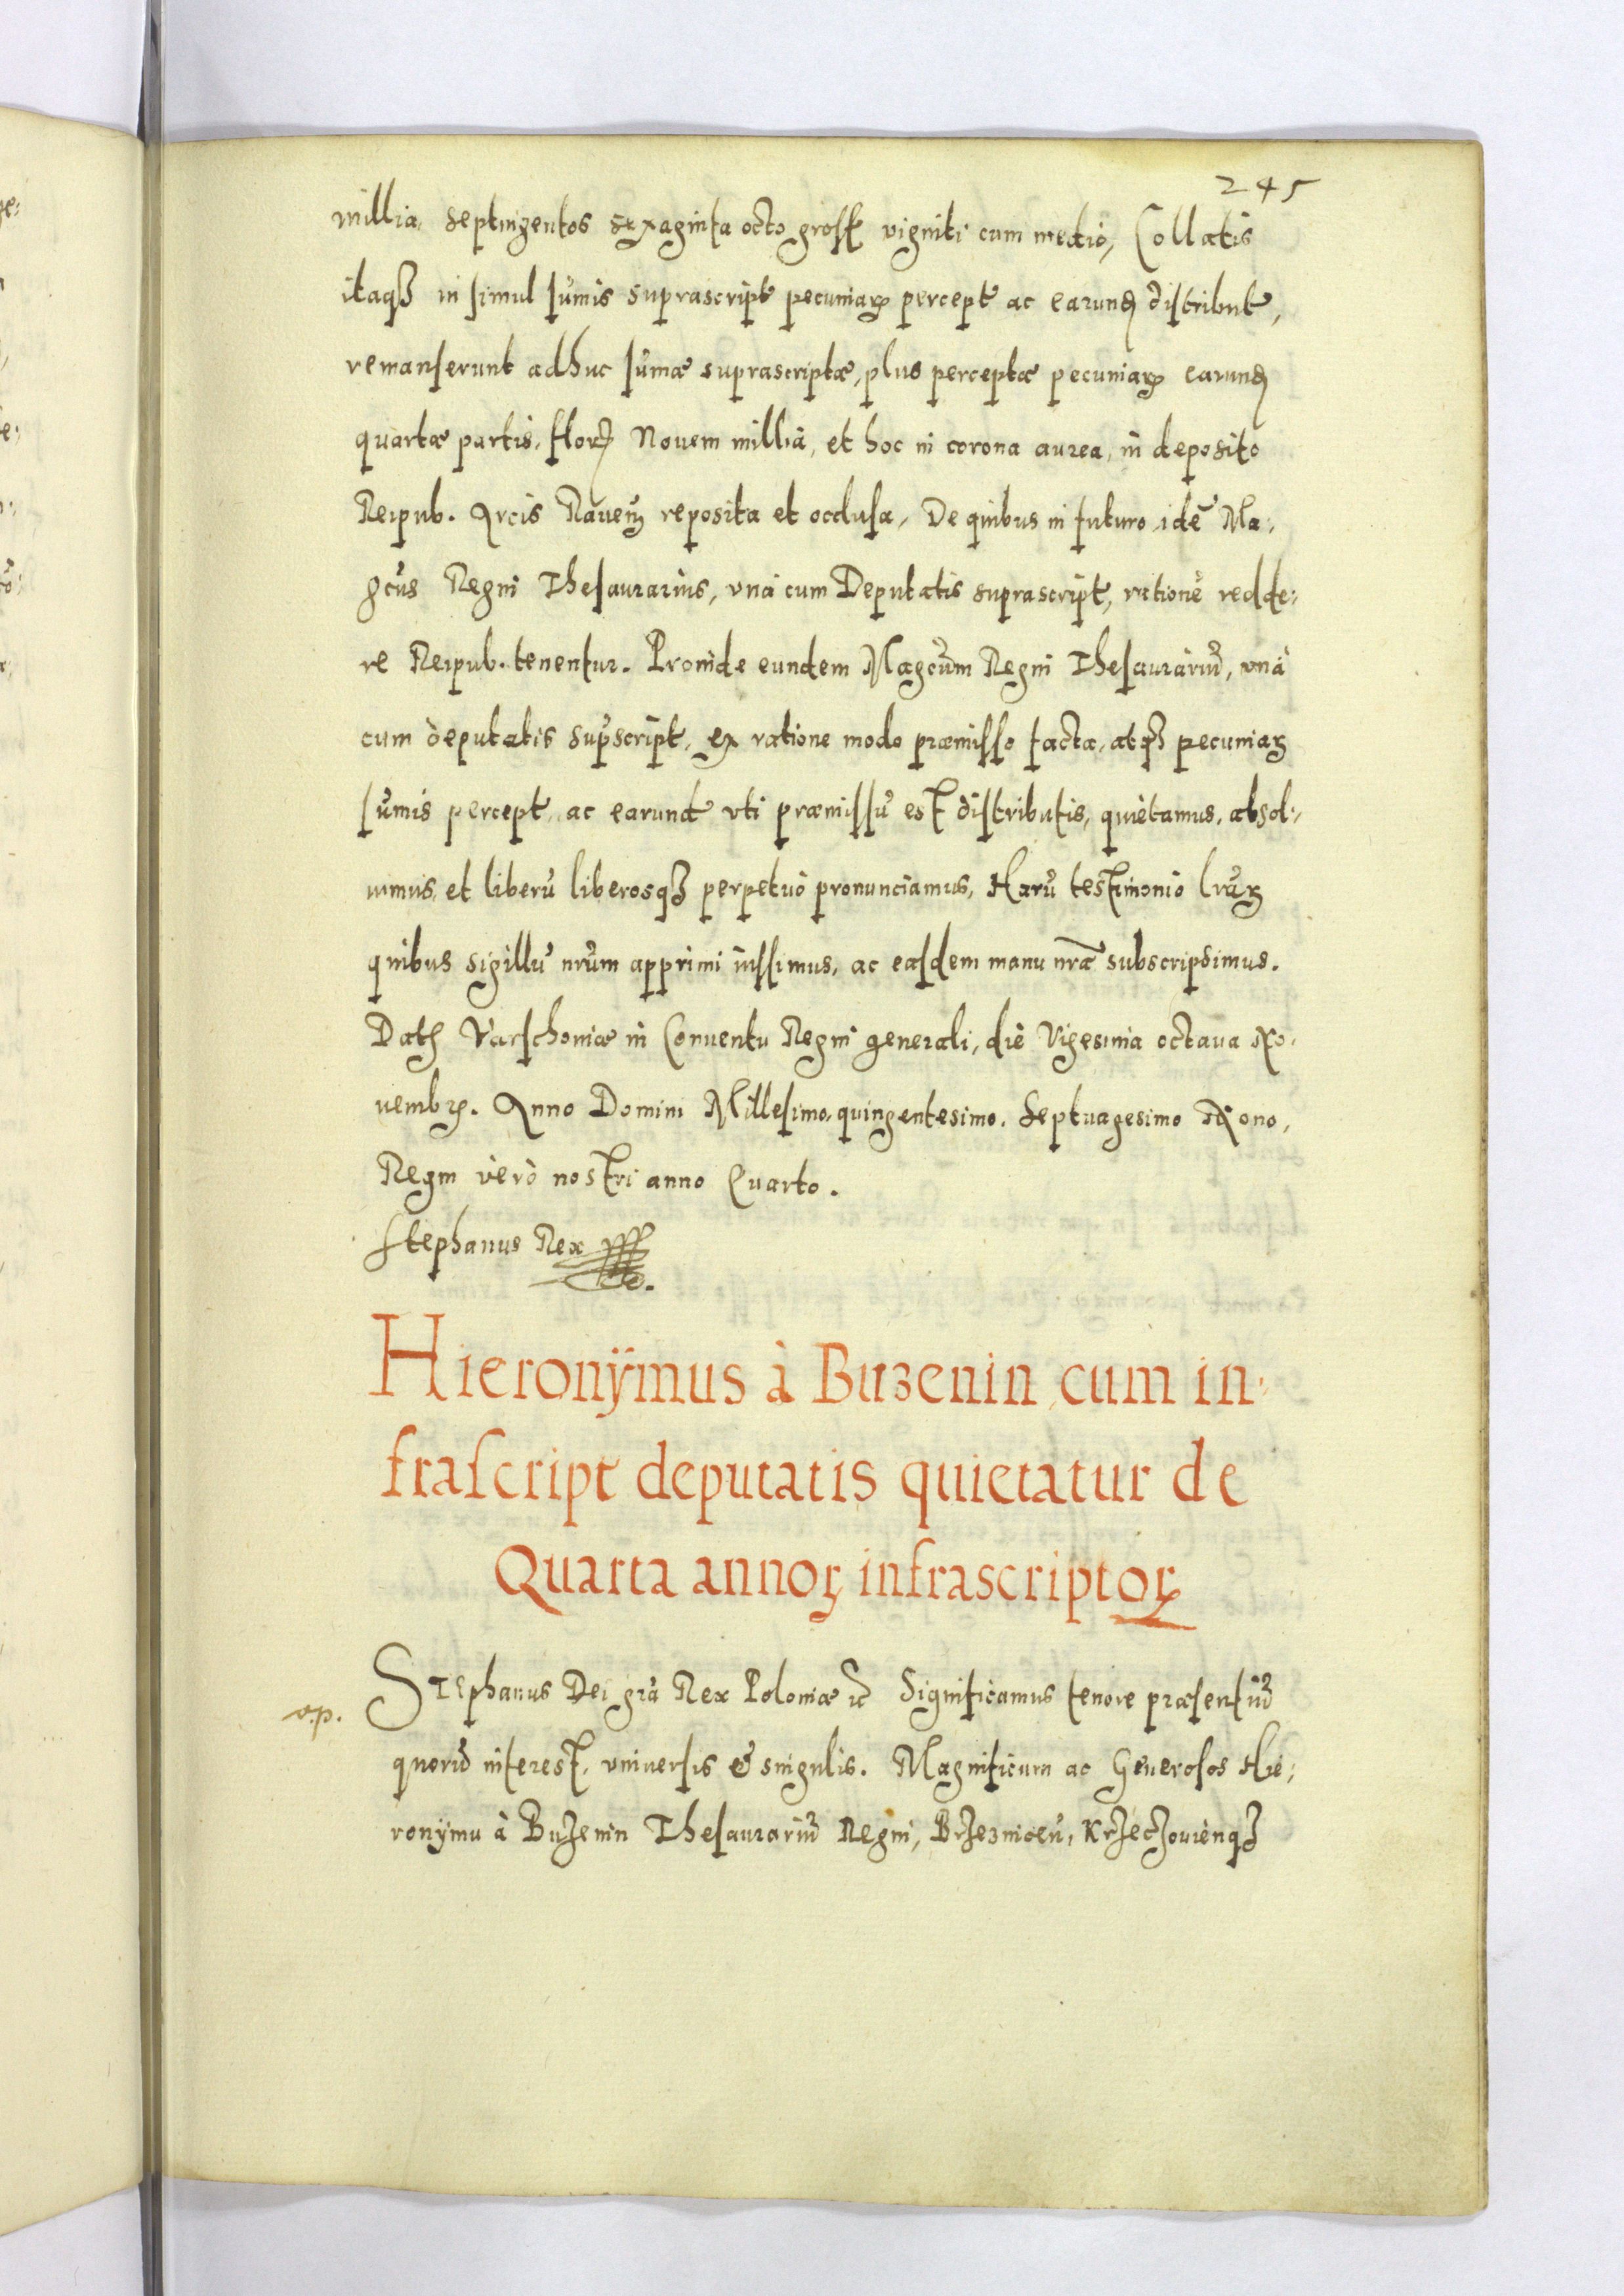 245
millia, septingentos sexaginta octo gross viginti cum medio, Collatis
itaqȝ in simul sumis suprascript pecuniaꝝ percept ac earund distribut,
remanserunt adhuc sumæ suprascriptæ, plus perceptæ pecuniaꝝ earund
quartæ partis, flor Nouem millia, et hoc in corona aurea, in deposito
Reipub. Arcis Rauen reposita et occlusa, De quibus in futuro idē Ma:
gcus Regni Thesaurarius, vnà cum Deputatis suprascript, rationē redde:
re Reipub. tenentur. Proinde eundem Magcum Regni Thesaurariū, vnà
cum deputatis supscript, ex ratione modo præmisso facta, atqȝ pecuniaꝝ
sumis percept, ac earund vti præmissū est distributis, quietamus, absol:
uimus, et liberū liberosqȝ perpetuò pronunciamus, Harū testimonio lrūꝝ
quibus sigillū nrum apprimi iussimus, ac easdem manu nrā subscripsimus.
Dat Varschouiæ in Conuentu Regni generali, die Vigesima octaua No:
uembr. Anno Domini Millesimo, quingentesimo, Septuagesimo Nono,
Regni verò nostri anno Quarto.
Stephanus Rex
Hieronÿmus à Buzenin cum in:
frascript deputatis quietatur de
Quarta annoꝝ infrascriptoꝝ
v.p.
STEphanus Dei gra Rex Poloniæ etc Significamus tenore præsentiū
quorū interest, vniuersis & singulis. Magnificum ac Generosos Hie:
ronÿmū à Buzenin Thesaurariū Regni, Brzeznicen, Krzeczouienqȝ